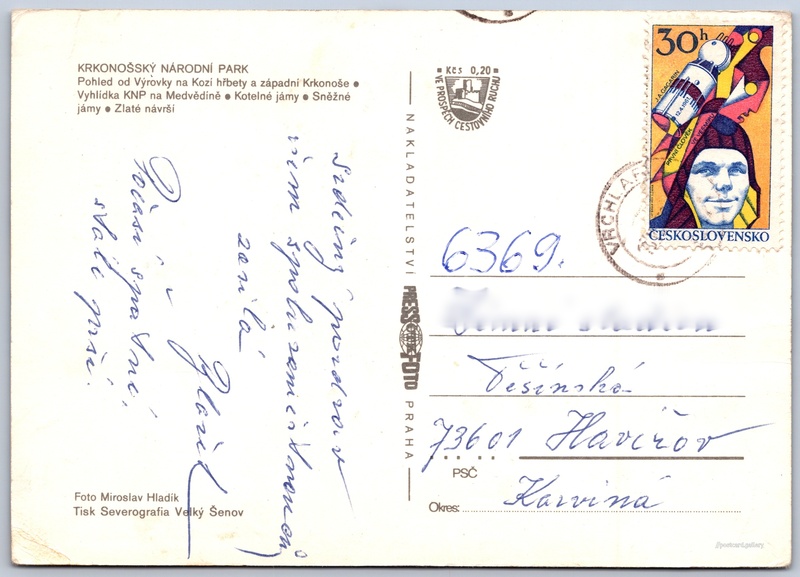 KRKONOŠSKÝ NÁRODNÍ PARK
Pohled od Výrovky na Kozí hřbety a západní Krkonoše ●
Vyhlídka KNP na Medvědíně ● Kotelné jámy ● Sněžné
jámy ● Zlaté návrší
Srdečný pozdrav
všem spolu
zasílá
Počasí špatné,
stále prší.
Foto Miroslav Hladík
Tisk Severografia Velký Šenov
Kčs 0,20
VE PROSPĚCH CESTOVNÍHO RUCHU
NAKLADATELSTVÍ
PRESSFOTO
PRAHA
30h
J.A.GAGARIN
12.4.1961
PRVNÍ ČLOVĚK
VE VESMÍRU
ČESKOSLOVENSKO
VRCHLAB
6369.
Těšínská
73601 Havířov
PSČ
Okres: Karviná
//postcard.gallery